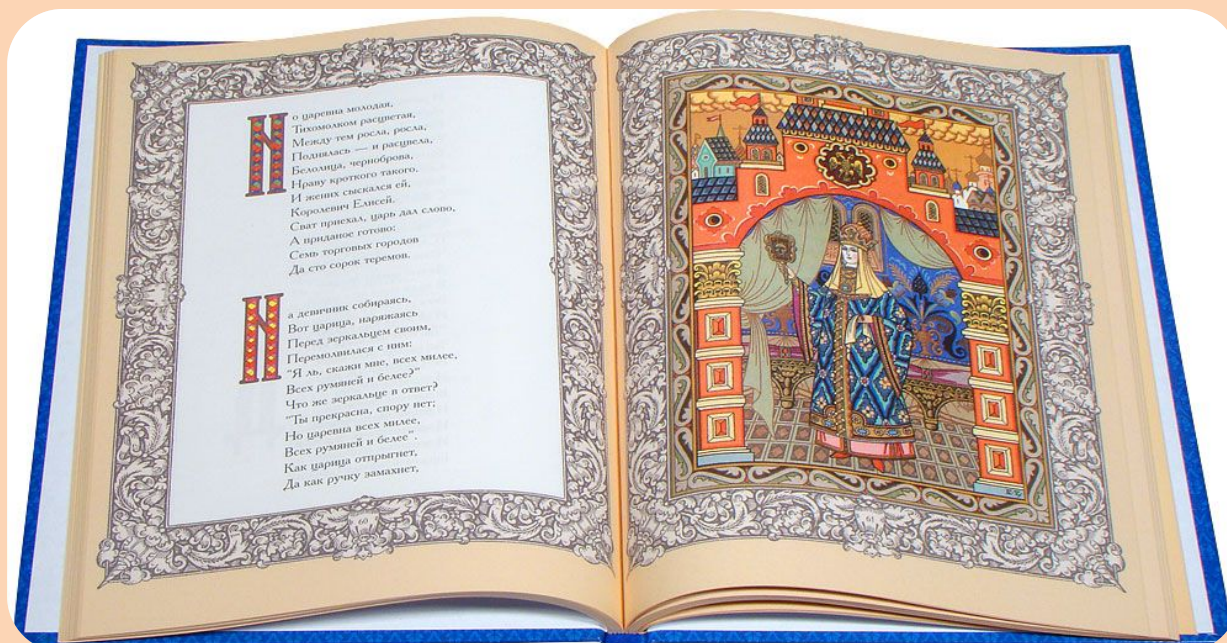 Но царевна молодая,
Тихомолком расцветая,
Между тем росла, росла,
Поднялась — и расцвела,
Белолица, черноброва,
Нраву кроткого такого.
И жених сыскался ей,
Королевич Елисей.
Сват приехал, царь дал слово,
А приданое готово:
Семь торговых городов
Да сто сорок теремов.
На девичник собираясь,
Вот царица, наряжаясь
Перед зеркальцем своим,
Перемолвилася с ним:
"Я ль, скажи мне, всех милее,
Всех румяней и белее?"
Что же зеркальце в ответ?
"Ты прекрасна, спору нет;
Но царевна всех милее,
Всех румяней и белее".
Как царица отпрыгнет,
Да как ручку замахнет,
60
61